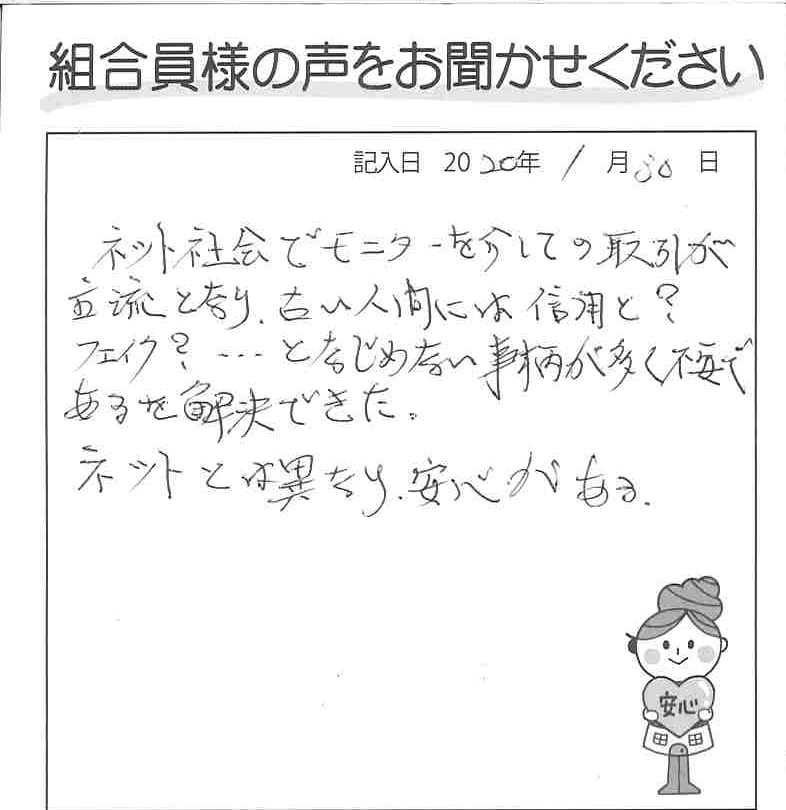 組合員様の声をお聞かせください
記入日 2020年 1月30日
ネット社会でモニターを介しての取引が
主流となり、古い人間には信用と?
フェイク?…となじめない事柄が多く不安で
あるを解決できた。
ネットとは異なり、安心がある.
安心